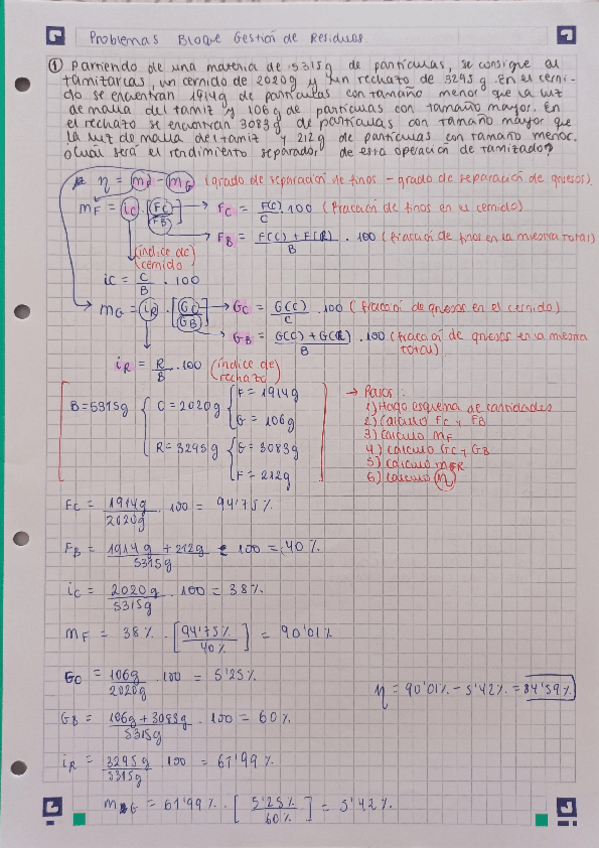 Problemas Bloque Gestión de Residuos
① Partiendo de una materia de 5315g de partículas, se consigue al
tamizarlas, un cernido de 2020g y un rechazo de 3295g. En el cerni-
do se encuentran 1914g de partículas con tamaño menor que la luz
de malla del tamiz y 106g de partículas con tamaño mayor. En
el rechazo se encuntran 3083g de partículas con tamaño mayor que
la luz de malla del tamiz y 212g de partículas con tamaño menor.
¿Cuál será el rendimiento separador de esta operación de tamizado?
η = mF - mG (grado de separación de finos - grado de separación de gruesos)
mF = ic · [FC/FB] → FC = F(C)/C · 100 (fracción de finos en el cernido)
FB = F(C) + F(R)/B · 100 (fracción de finos en la muestra total)
(índice de cernido)
ic = C/B · 100
mG = iR · [GC/GB] → GC = G(C)/C · 100 (fracción de gruesos en el cernido)
GB = G(C) + G(R)/B · 100 (fracción de gruesos en la muestra total)
iR = R/B · 100 (índice de rechazo)
B = 5315g { C = 2020g { F = 1914g
G = 106g
R = 3295g { G = 3083g
F = 212g
→ Pasos:
1) Hago esquema de cantidades
2) Calculo FC y FB
3) Calculo mF
4) Calculo GC y GB
5) Calculo mR
6) Calculo η
FC = 1914g/2020g · 100 = 94'75%
FB = 1914g + 212g/5315g · 100 = 40%
ic = 2020g/5315g · 100 = 38%
mF = 38% · [94'75%/40%] = 90'01%
GC = 106g/2020g · 100 = 5'25%
η = 90'01% - 5'42% = 84'59%
GB = 106g + 3083g/5315g · 100 = 60%
iR = 3295g/5315g · 100 = 61'99%
mG = 61'99% · [5'25%/60%] = 5'42%